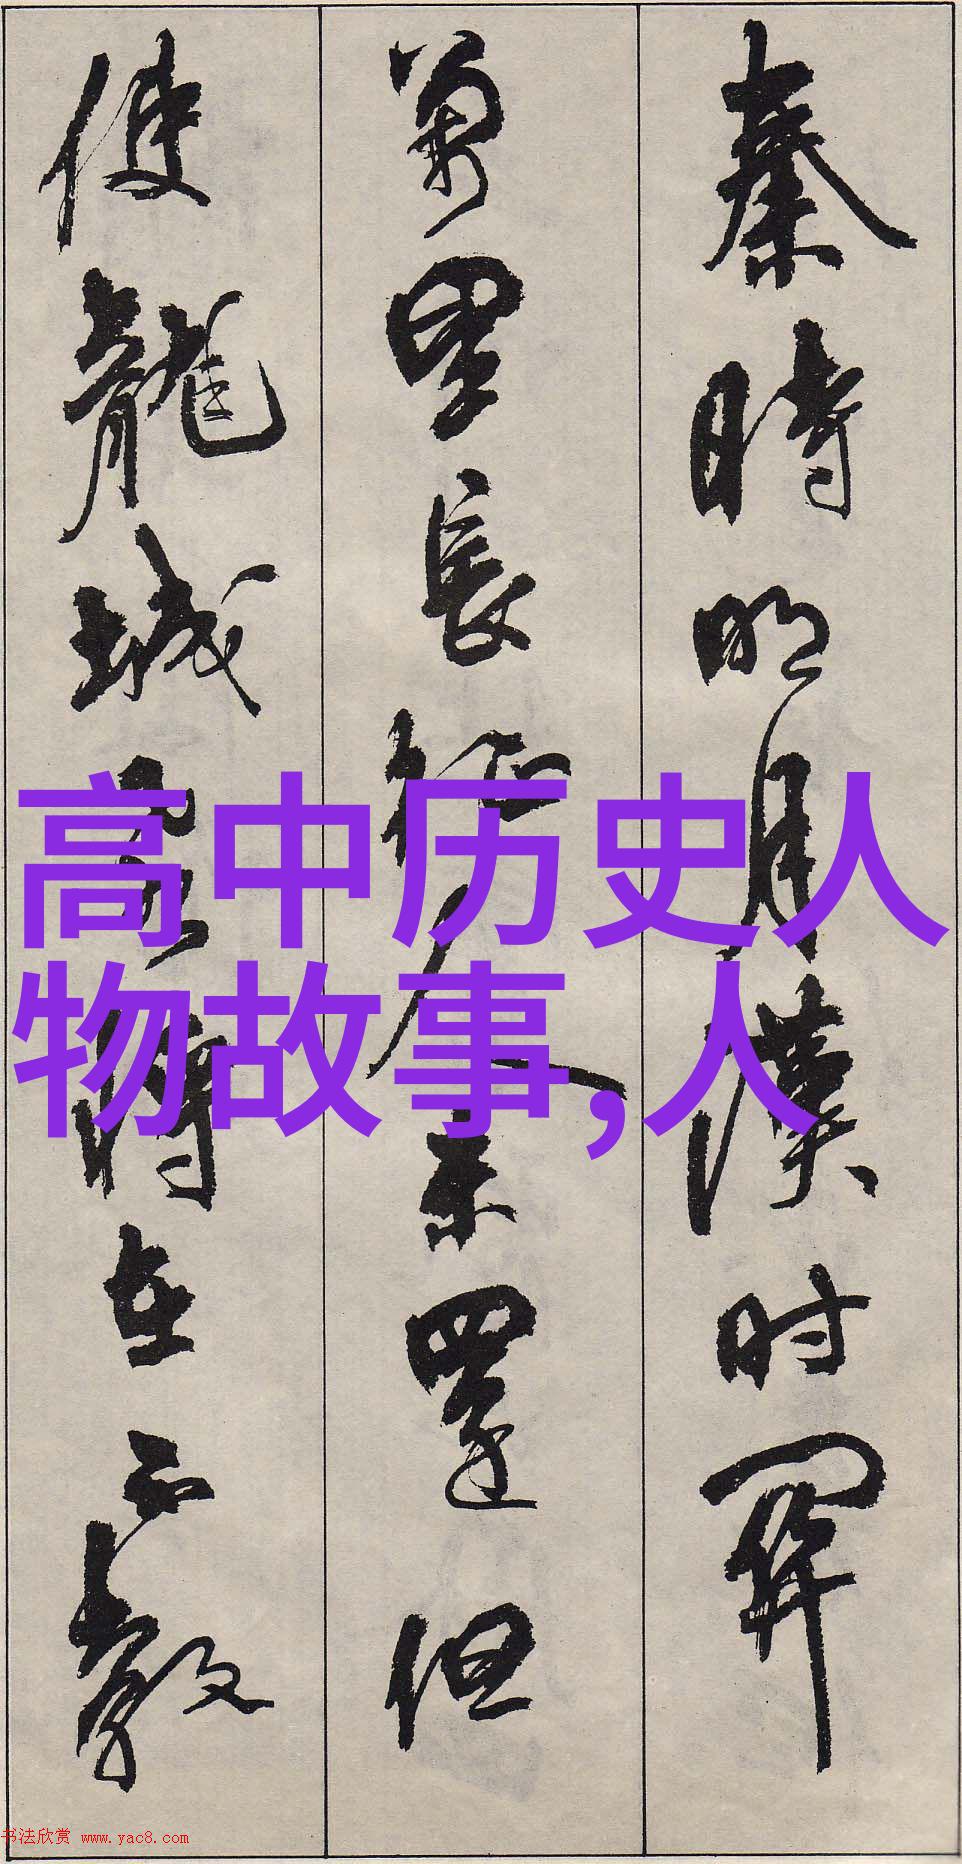 秦時明月漢时關
萬里長征人未還但
使龍城飛將在不教
高中历史人
物故事,人
书法欣赏 www.yac8.com